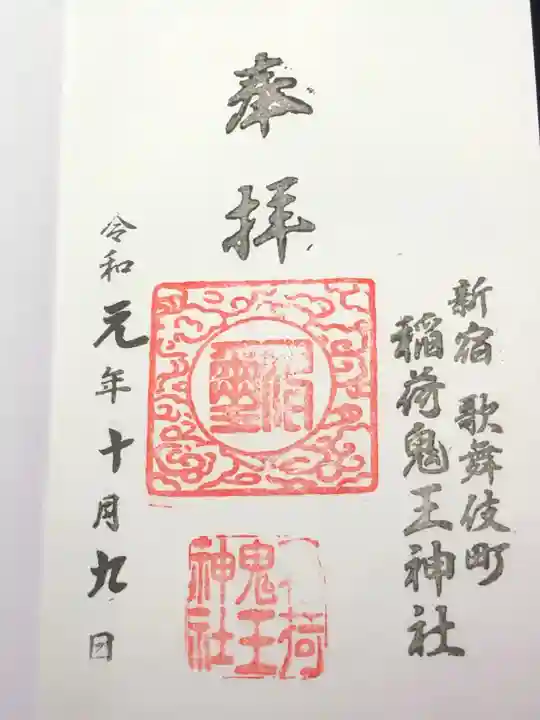 奉拝
新宿 歌舞伎町
稲荷鬼王神社
荷
鬼王
神社
令和元年十月九日